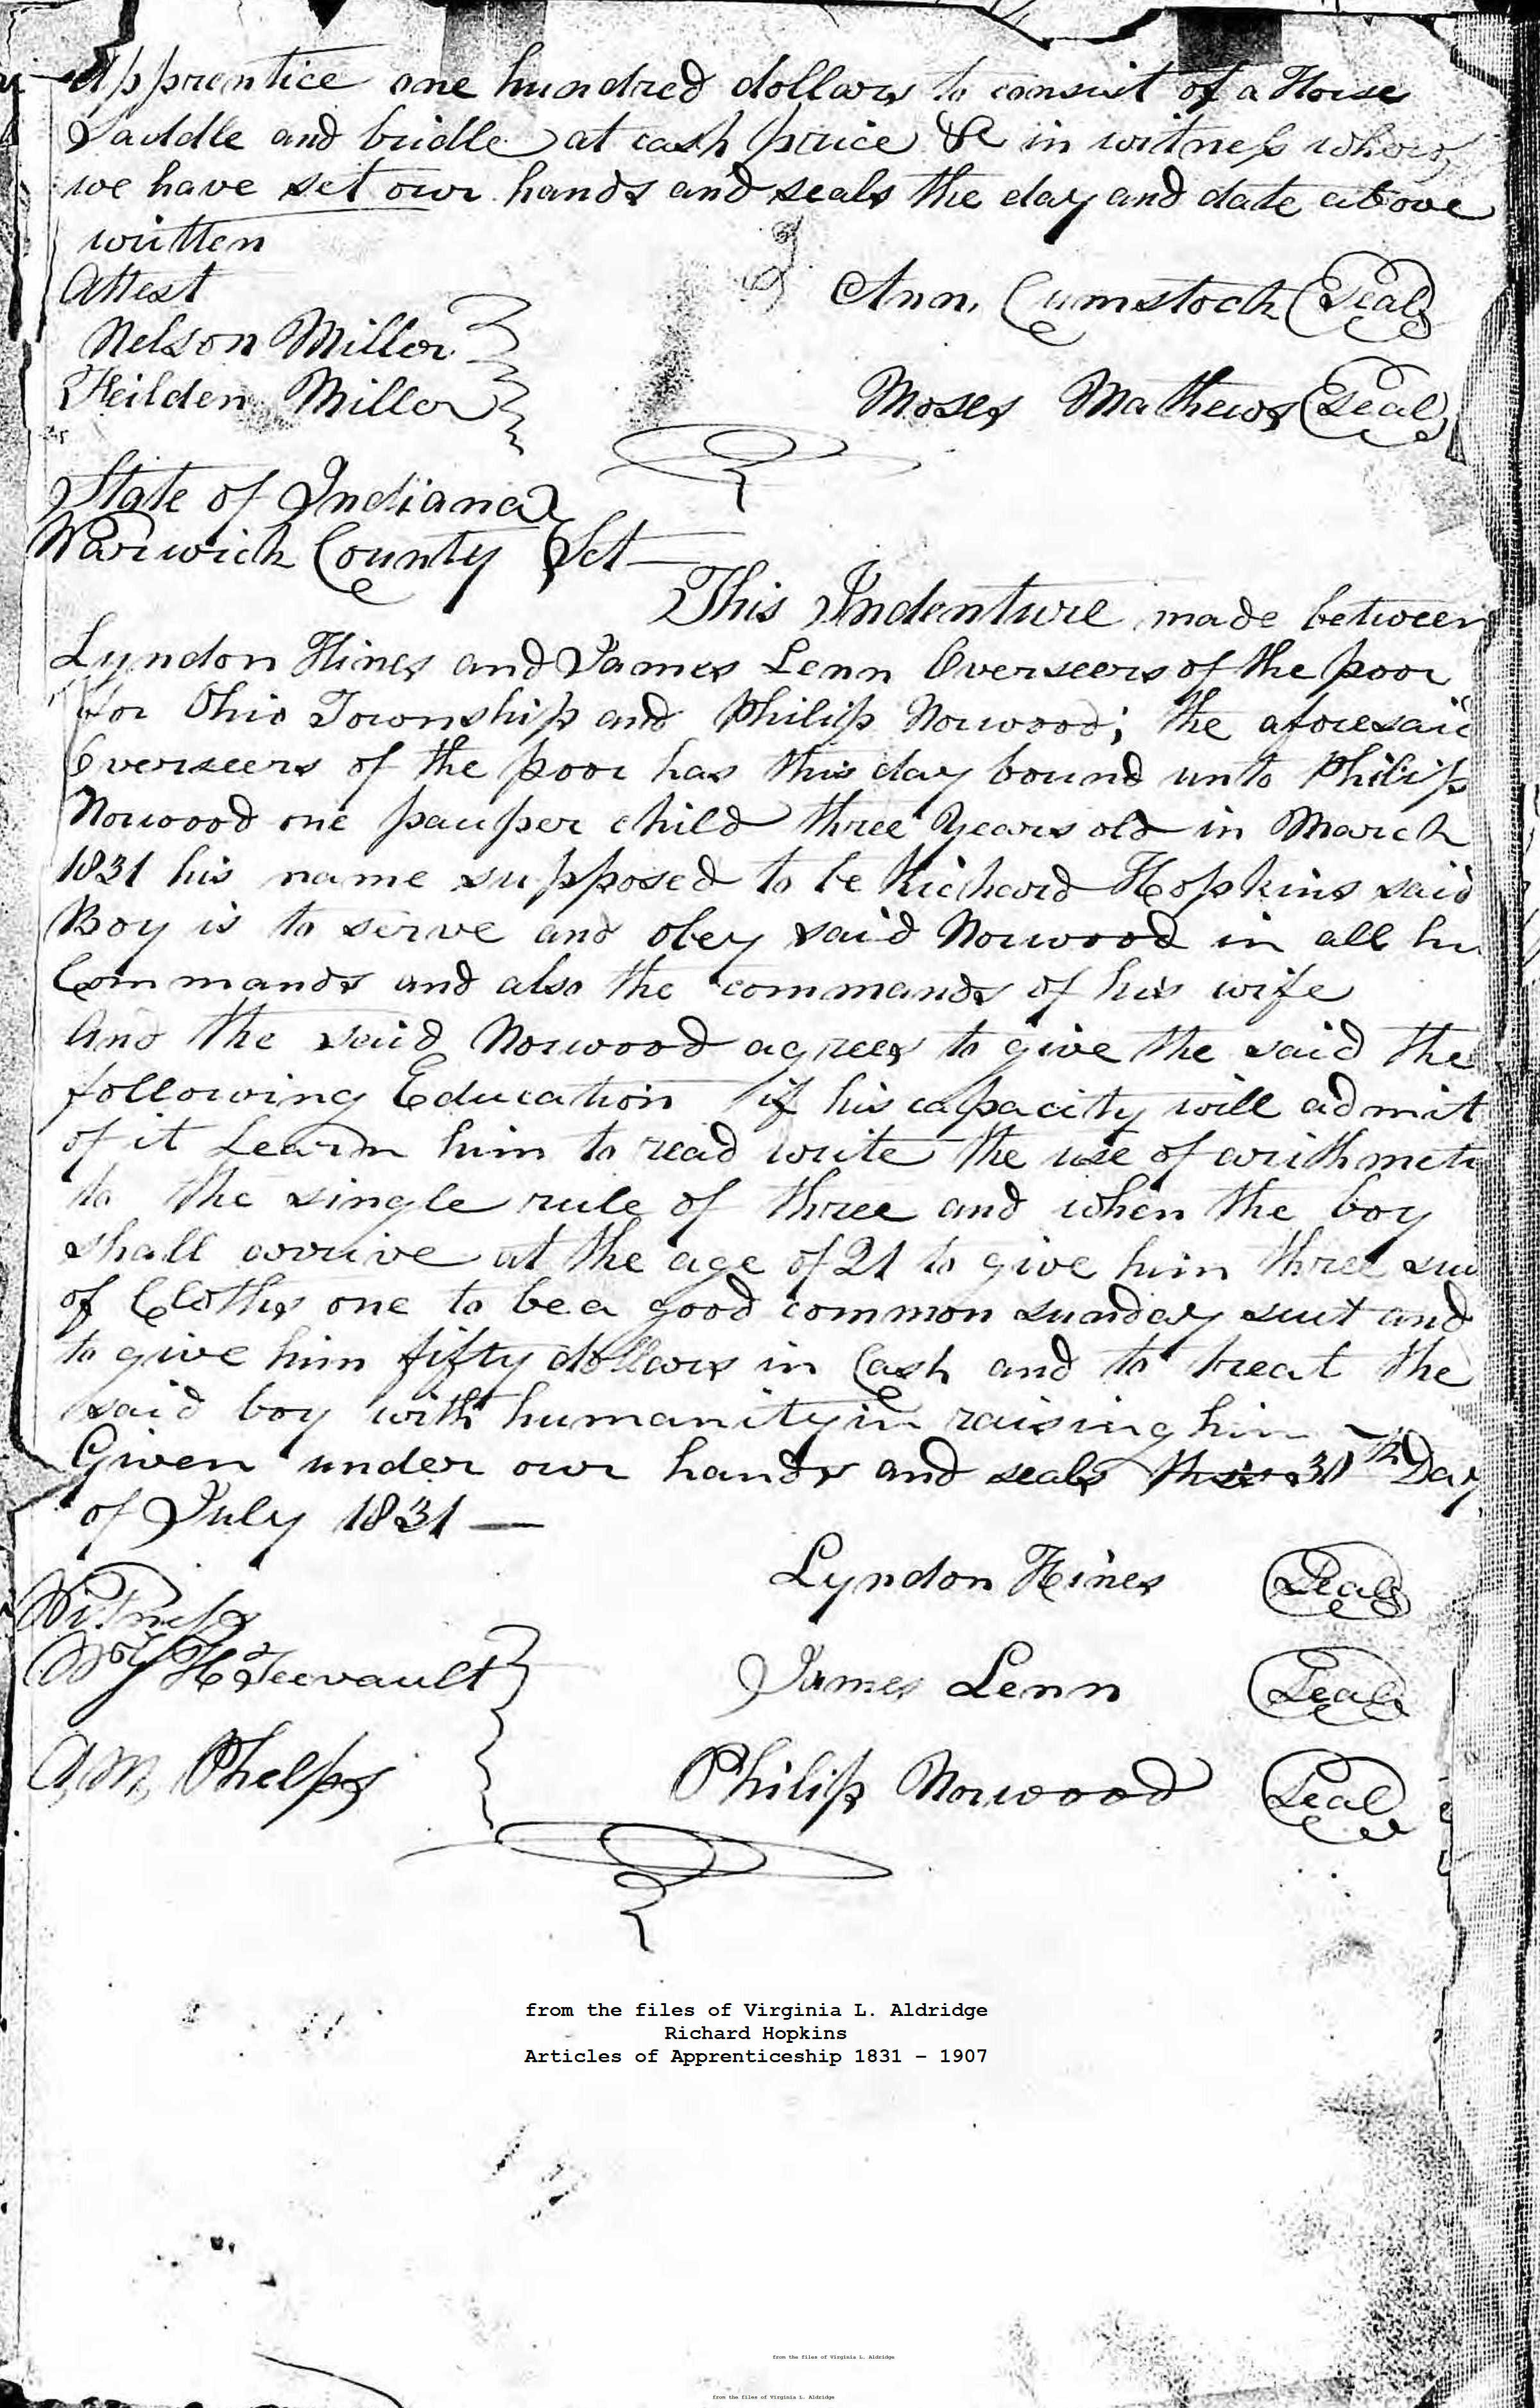 Apprentice one hundred dollars to consist of a Horse
Saddle and bridle at cash price &c in witness whereof
we have set our hands and seals the day and date above
written
Attest
Nelson Miller
Feilden Miller
Ann Cumstock Seal
Moses Mathews Seal
State of Indiana
Warwick County Sct
This Indenture made between
Lyndon Hines and James Lenn Overseers of the poor
for Ohio Township and Philip Norwood; the aforesaid
Overseers of the poor has this day bound unto Philip
Norwood one pauper child three years old in March
1831 his name supposed to be Richard Hopkins said
Boy is to serve and obey said Norwood in all his
Commands and also the commands of his wife
And the said Norwood agrees to give the said the
following Education if his capacity will admit
of it Learn him to read write the use of arithmeti
to the single rule of three and when the boy
shall arrive at the age of 21 to give him three sui
of Cloths one to be a good common sunday suit and
to give him fifty dollars in Cash and to treat the
said boy with humanity in raising him
Given under our hands and seals this 30th Day
of July 1831 —
Witness
H Teevault
A, M, Phelps
Lyndon Hines Seal
James Lenn Seal
Philip Norwood Seal
from the files of Virginia L. Aldridge
Richard Hopkins
Articles of Apprenticeship 1831 – 1907
from the files of Virginia L. Aldridge
from the files of Virginia L. Aldridge